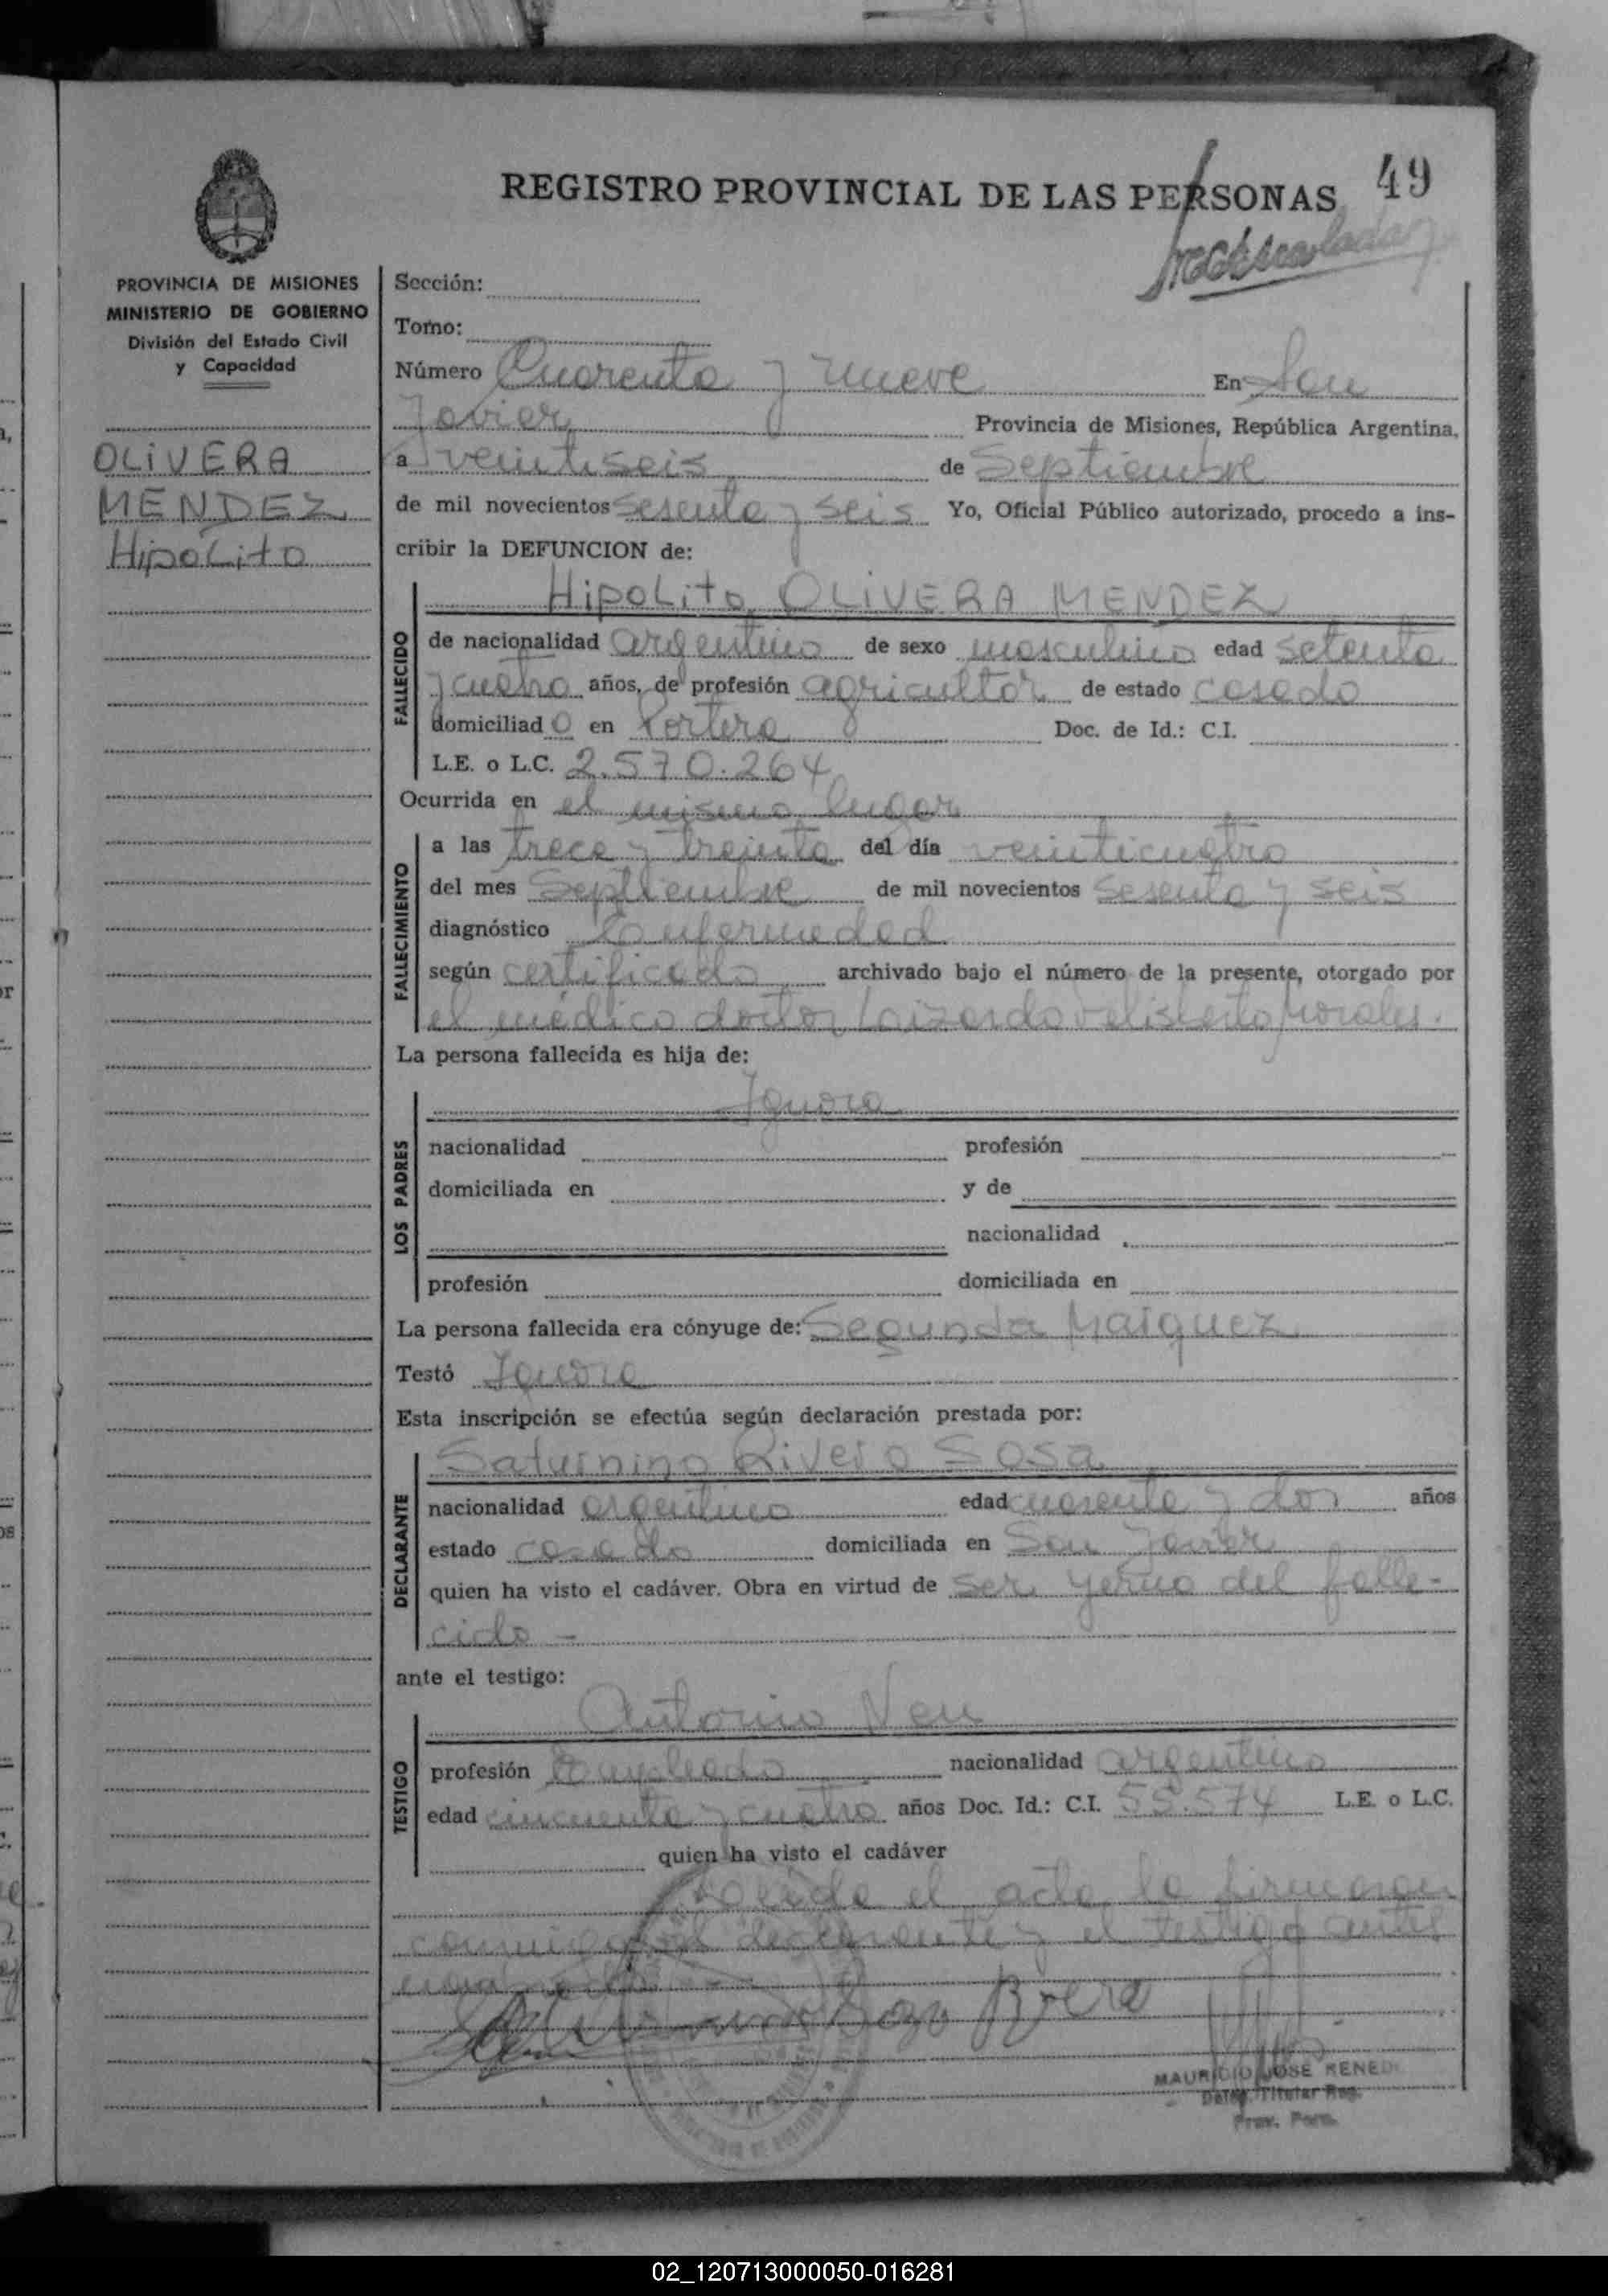 49
REGISTRO PROVINCIAL DE LAS PERSONAS
PROVINCIA DE MISIONES
MINISTERIO DE GOBIERNO
División del Estado Civil
y Capacidad
OLIVERA
MENDEZ
Hipólito
Sección:
Tomo:
Número Cuarenta y nueve En San
Javier Provincia de Misiones, República Argentina,
a veintiseis de Septiembre
de mil novecientos sesenta y seis Yo, Oficial Público autorizado, procedo a ins-
cribir la DEFUNCION de:
FALLECIDO
Hipolito OLIVERA MENDEZ
de nacionalidad argentino de sexo masculino edad setenta
y cuatro años, de profesión agricultor de estado casado
domiciliado en Portera Doc. de Id.: C.I.
L.E. o L.C. 2.570.264
Ocurrida en el mismo lugar
FALLECIMIENTO
a las trece y treinta del día veinticuatro
del mes Septiembre de mil novecientos sesenta y seis
diagnóstico Enfermedad
según certificado archivado bajo el número de la presente, otorgado por
el médico doctor Morales.
La persona fallecida es hija de:
LOS PADRES
Ignora
nacionalidad profesión
domiciliada en y de
nacionalidad
profesión domiciliada en
La persona fallecida era cónyuge de: Segunda Maiquez
Testó Ignora
Esta inscripción se efectúa según declaración prestada por:
DECLARANTE
Saturnino Rivero Sosa
nacionalidad argentino edad cuarenta y dos años
estado casado domiciliada en San Javier
quien ha visto el cadáver. Obra en virtud de ser yerno del falle-
cido -
ante el testigo:
TESTIGO
Antonio Neu
profesión Empleado nacionalidad argentino
edad cincuenta y cuatro años Doc. Id.: C.I. 55.574 L.E. o L.C.
quien ha visto el cadáver
Leída el acta la firmaron
conmigo el declarante y el testigo antes
MAURICIO JOSE RENE
Deleg. Titular Reg.
Prov. Pers.
02_120713000050-016281